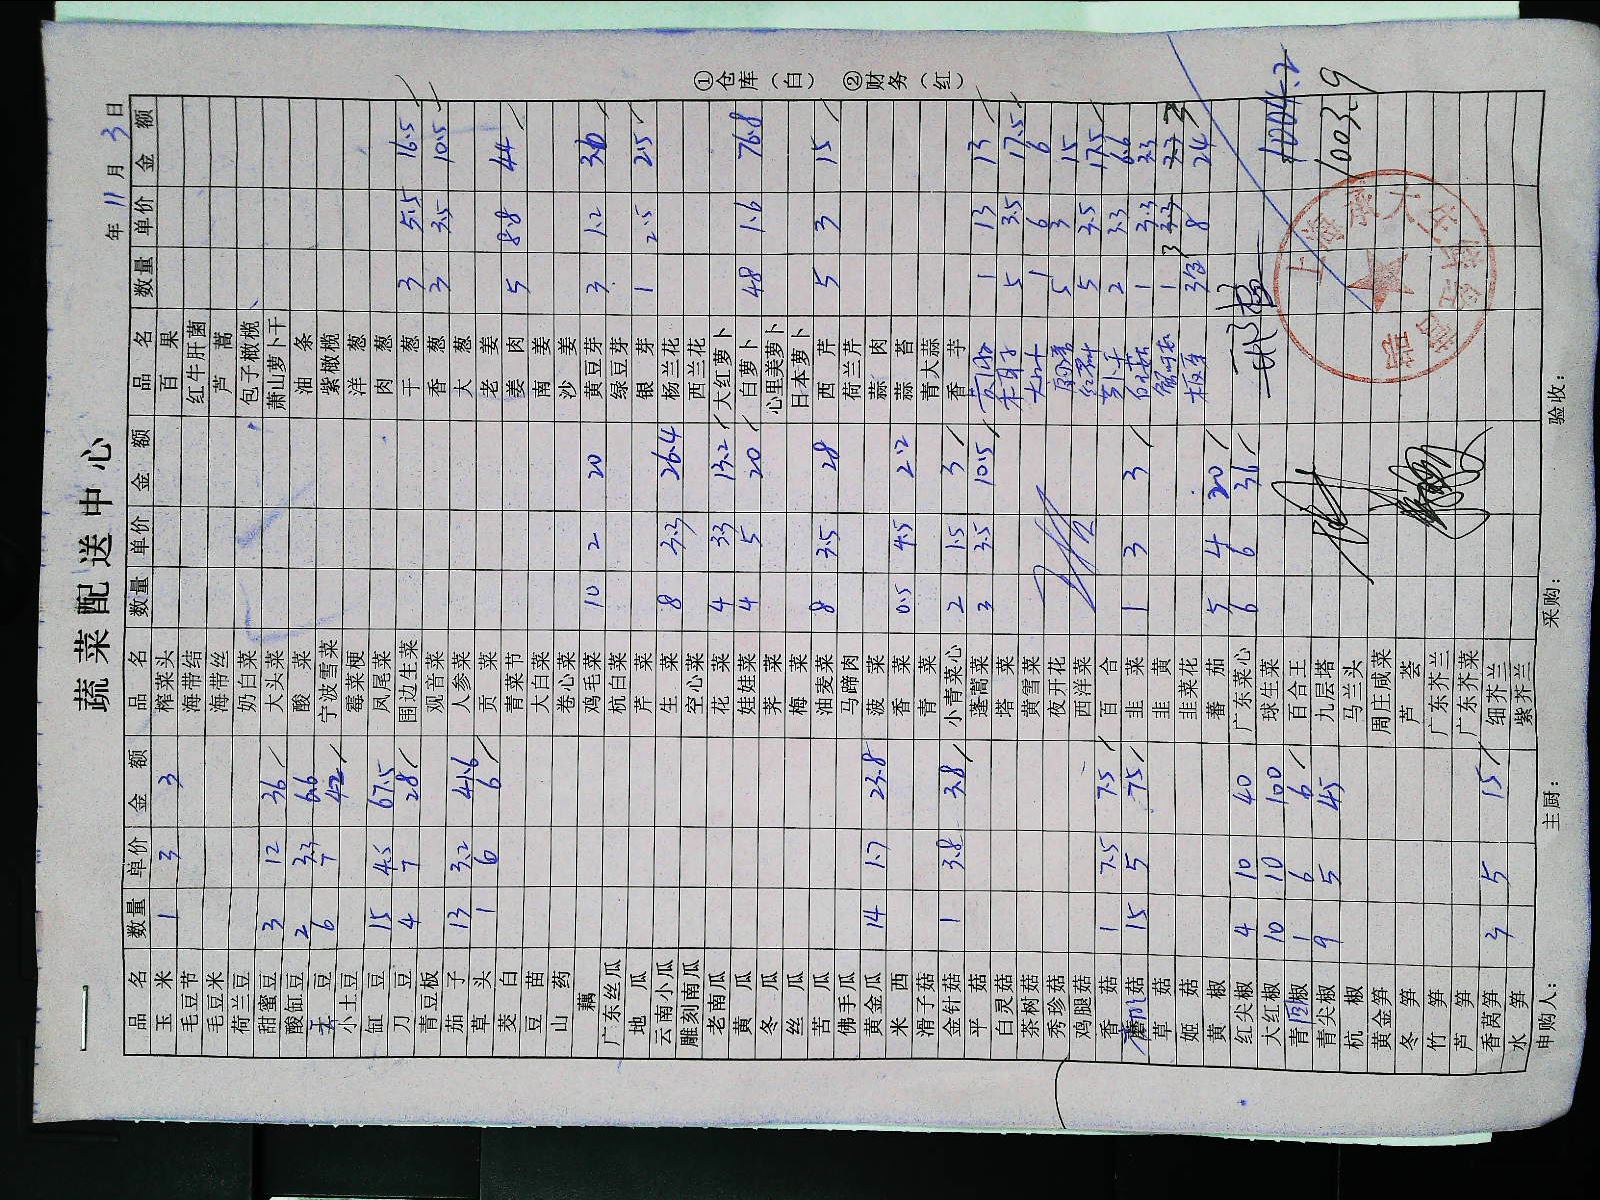 蔬菜配送中心
年 11 月 3 日
品名 数量 单价 金额 品名 数量 单价 金额 品名 数量 单价 金额
玉米 1 3 3 榨菜头 百果
毛豆节 海带结 红牛肝菌
毛豆米 海带丝 芦蒿
荷兰豆 奶白菜 包子橄榄
甜蜜豆 3 12 36 大头菜 萧山萝卜干
酸缸豆 2 3.3 6.6 酸菜 油条
豆 6 7 42 宁波雪菜 紫橄榄
小土豆 霉菜梗 洋葱
缸豆 15 4.5 67.5 凤尾菜 肉葱
刀豆 4 7 28 围边生菜 干葱 3 5.5 16.5
青豆板 观音菜 香葱 3 3.5 10.5
茄子 13 3.2 41.6 人参菜 大葱
草头 1 6 6 贡菜 老姜
茭白 青菜节 姜肉 5 8.8 44
豆苗 大白菜 南姜
山药 卷心菜 沙姜
藕 鸡毛菜 10 2 20 黄豆芽 3 1.2 3.6
广东丝瓜 杭白菜 绿豆芽
地瓜 芹菜 银芽 1 2.5 2.5
云南小瓜 生菜 8 3.3 26.4 杨兰花
雕刻南瓜 空心菜 西兰花
老南瓜 花菜 4 3.3 13.2 大红萝卜
黄瓜 娃娃菜 4 5 20 白萝卜 48 1.6 76.8
冬瓜 荠菜 心里美萝卜
丝瓜 梅菜 日本萝卜
苦瓜 油麦菜 8 3.5 28 西芹 5 3 15
佛手瓜 马蹄肉 荷兰芹
黄金瓜 14 1.7 23.8 菠菜 蒜肉
米西 香菜 0.5 4.5 2.2 蒜苔
滑子菇 青菜 青大蒜
金针菇 1 3.8 3.8 小青菜心 2 1.5 3 香芋
平菇 蓬蒿菜 3 3.5 10.5 1 13 13
白灵菇 塔菜 5 3.5 17.5
茶树菇 黄雪菜 1 6 6
秀珍菇 夜开花 5 3 15
鸡腿菇 西洋菜 5 3.5 17.5
香菇 1 7.5 7.5 百合 2 3.3 6.6
菇 15 5 75 韭菜 1 3 3 1 3.3 3.3
草菇 韭黄 1 3 3
姬菇 韭菜花 3 8 24
黄椒 蕃茄 5 4 20
红尖椒 4 10 40 广东菜心 6 6 36
大红椒 10 10 100 球生菜 1004.2
青圆椒 1 6 6 百合王
青尖椒 9 5 45 九层塔 1003.9
杭椒 马兰头
黄金笋 周庄咸菜
冬笋 芦荟
竹笋 广东芥兰
芦笋 广东芥菜
香莴笋 3 5 15 细芥兰
水笋 紫芥兰
申购人： 主厨： 采购： 验收：
①仓库（白） ②财务（红）